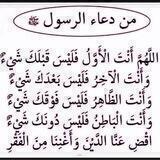 من دعاء الرسول ﷺ
اللَّهُمَّ أَنْتَ الْأَوَّلُ فَلَيْسَ قَبْلَكَ شَيْءٌ
وَأَنْتَ الْآخِرُ فَلَيْسَ بَعْدَكَ شَيْءٌ
وَأَنْتَ الظَّاهِرُ فَلَيْسَ فَوْقَكَ شَيْءٌ
وَأَنْتَ الْبَاطِنُ فَلَيْسَ دُونَكَ شَيْءٌ
اقْضِ عَنَّا الدَّيْنَ وَأَغْنِنَا مِنَ الْفَقْرِ